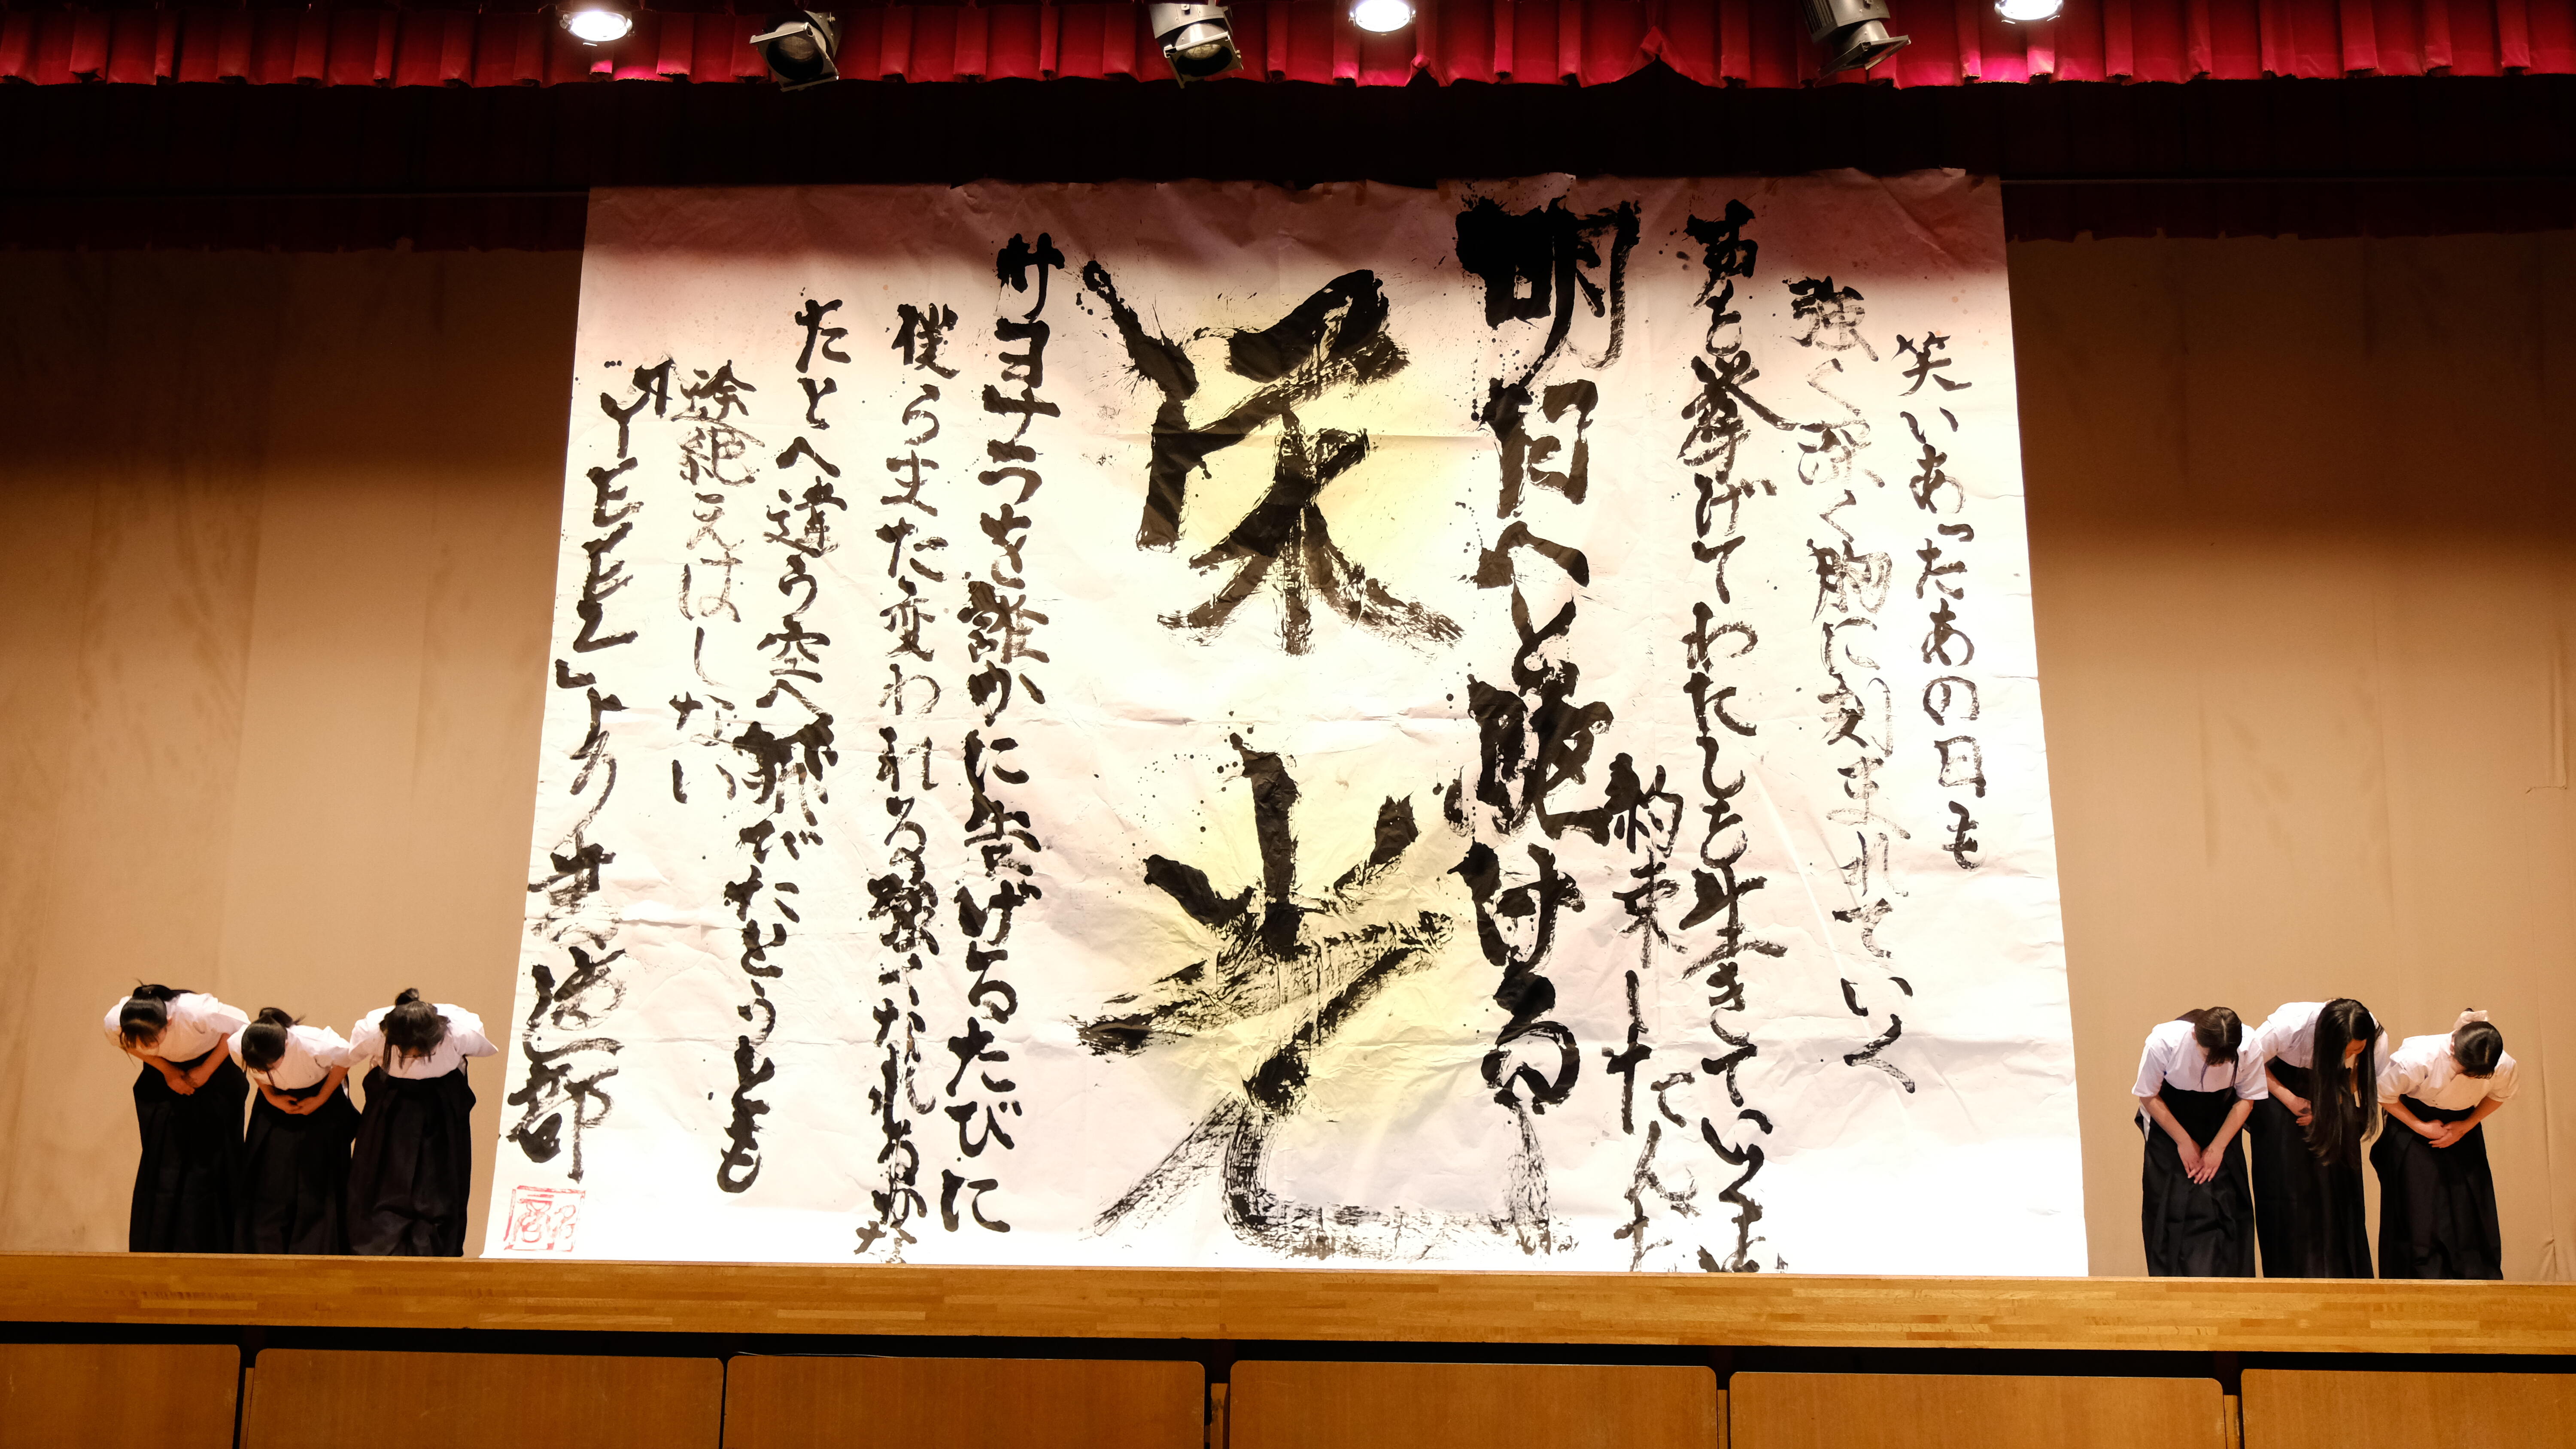 笑いあったあの日も
強く深く胸に刻まれていく
声を挙げてわたしを生きていくよ
約束したんだ
明日へと駆ける
栄光
サヨナラを誰かに告げるたびに
僕らまた変われる強くなれるかな
たとへ違う空へ飛びたとうとも
途絶えはしない
「YELL」より 書道部